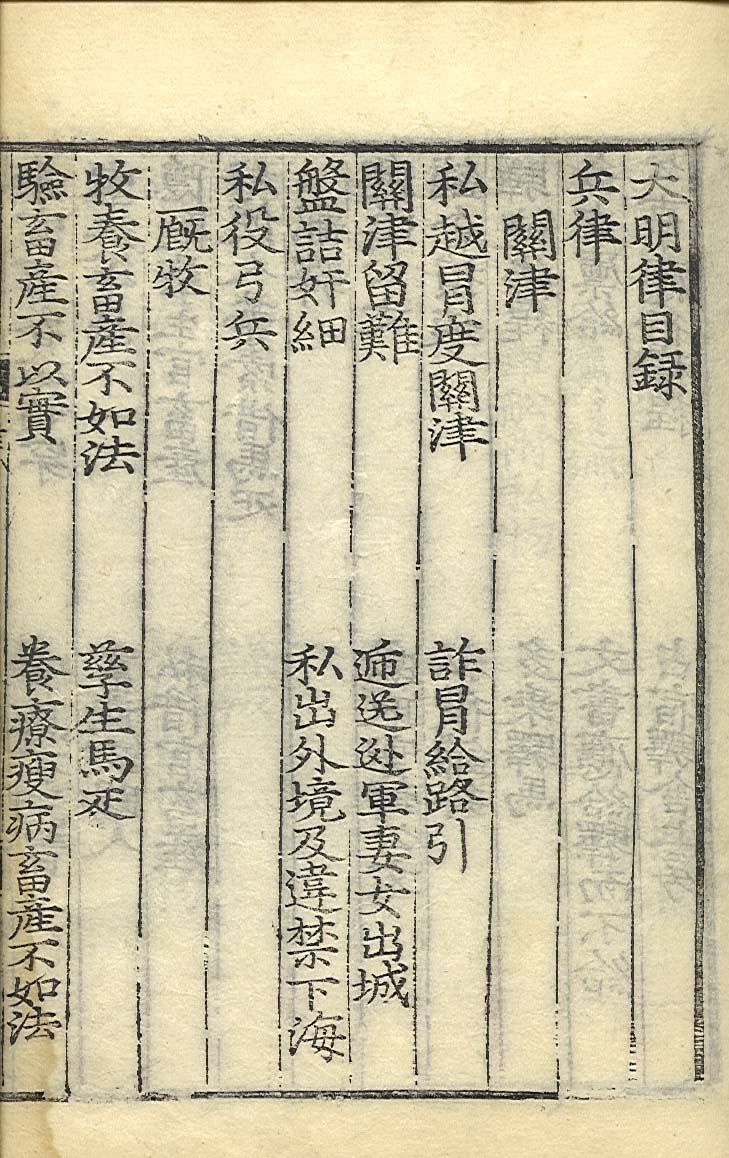 大明律目録
兵律
關津
私越冒度關津 詐冒給路引
關津留難 逓送逃軍妻女出城
盤詰奸細 私出外境及違禁下海
私役弓兵
廐牧
牧養畜産不如法 孶生馬疋
驗畜産不以實 養療瘦病畜産不如法